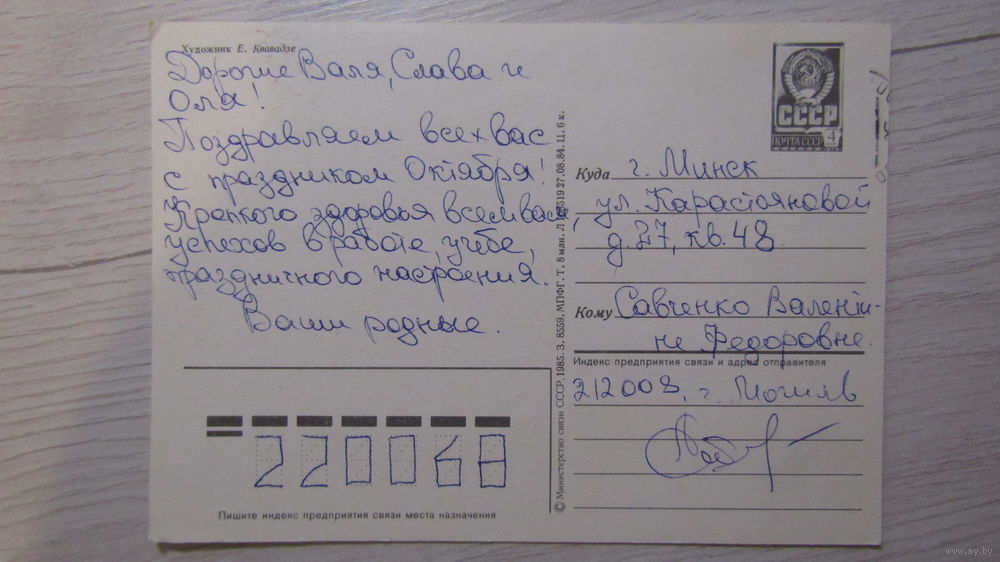 Художник Е. Квавадзе
Дорогие Валя, Слава и
Оля!
Поздравляем всех вас
с праздником Октября!
Крепкого здоровья всем вам,
успехов в работе, учебе,
праздничного настроения.
Ваши родные.
СССР
ПОЧТА СССР
4
Куда г. Минск
ул. Карастояновой
д. 27, кв. 48
Кому Савченко Валенти-
не Федоровне.
Индекс предприятия связи и адрес отправителя
212008, г. Могилв
220068
Пишите индекс предприятия связи места назначения
© Министерство связи СССР, 1985. З. 8559. МПФГ. Т. 8 млн. 27.08.84. Ц. 6 к.
www.ay.by